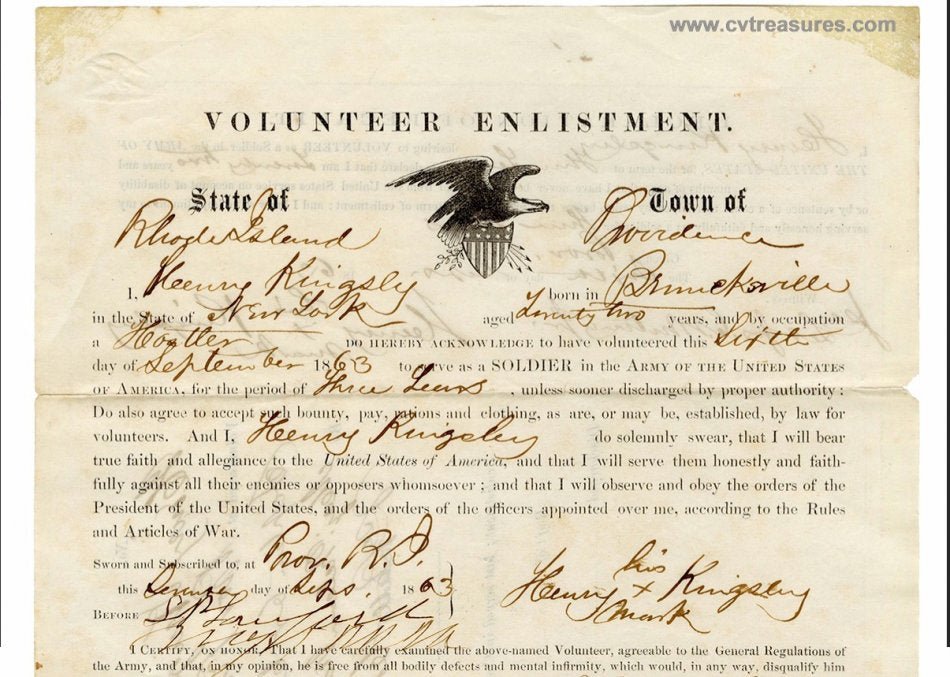 www.cvtreasures.com
VOLUNTEER ENLISTMENT.
State of Town of
Rhode Island Providence
I, Henry Kingsly born in
in the State of New York aged Twenty two years, and by occupation
a DO HEREBY ACKNOWLEDGE to have volunteered this Sixth
day of September 1863 to serve as a SOLDIER in the ARMY OF THE UNITED STATES
OF AMERICA, for the period of Three Years, unless sooner discharged by proper authority:
Do also agree to accept such bounty, pay, rations and clothing, as are, or may be, established, by law for
volunteers. And I, Henry Kingsley do solemnly swear, that I will bear
true faith and allegiance to the United States of America, and that I will serve them honestly and faith-
fully against all their enemies or opposers whomsoever; and that I will observe and obey the orders of the
President of the United States, and the orders of the officers appointed over me, according to the Rules
and Articles of War.
Sworn and Subscribed to, at Prov. R. I.
this day of Sept. 1863
his
Henry x Kingsley
mark
BEFORE
I CERTIFY, ON HONOR, That I have carefully examined the above-named Volunteer, agreeable to the General Regulations of
the Army, and that, in my opinion, he is free from all bodily defects and mental infirmity, which would, in any way, disqualify him